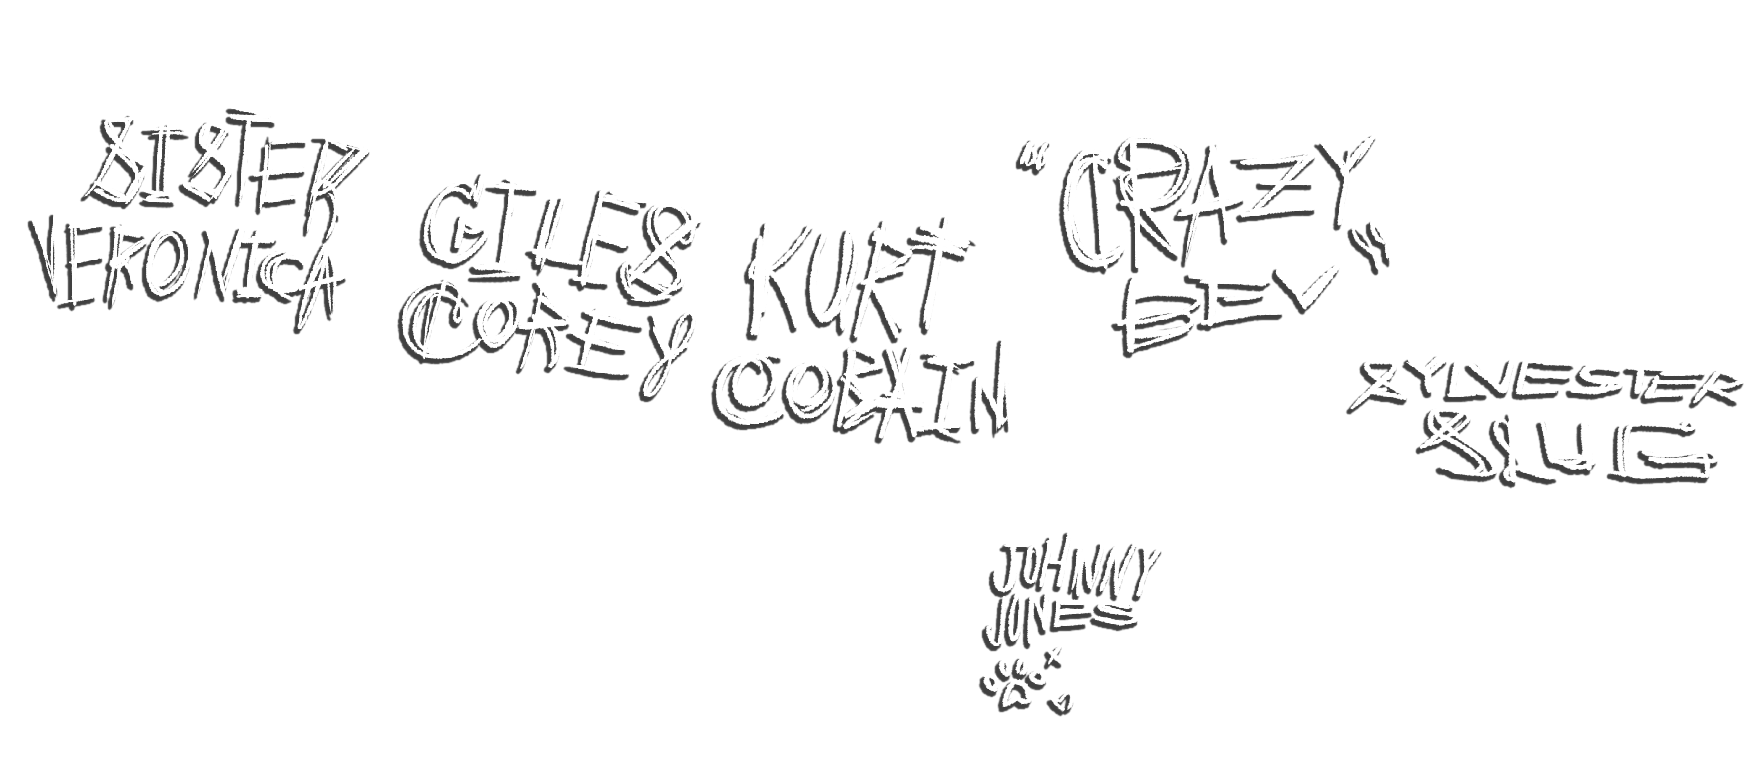 SISTER
VERONICA
GILES
COREY
KURT
COBAIN
"CRAZY"
BEV
SYLVESTER
SLUG
JOHNNY
JONES